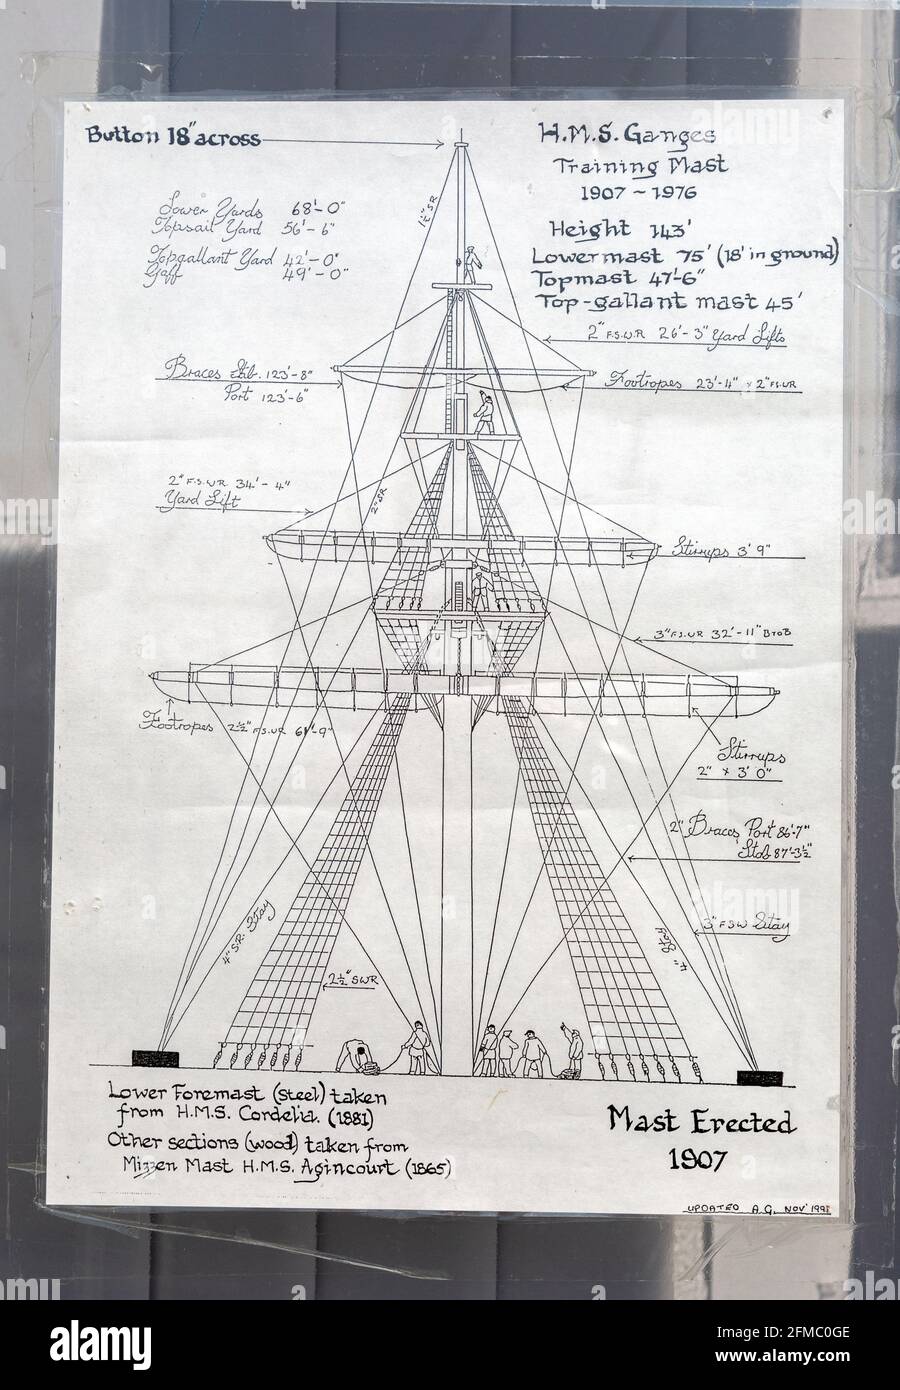 Button 18" across
H.M.S. Ganges
Training Mast
1907 ~ 1976
Height 143'
Lowermast 75' (18' in ground)
Topmast 47'-6"
Top-gallant mast 45'
Lower Yards 68'-0"
Topsail Yard 56'-6"
Topgallant Yard 42'-0"
Gaff 49'-0"
1½" S.R.
2" F.S.W.R. 26'-3" Yard Lifts
Braces Stb. 123'-8"
Port 123'-6"
Footropes 23'-4" x 2" F.S.W.R
2" F.S.W.R. 34'-4"
Yard Lift
2" S.R.
Stirrups 3' 9"
3" F.S.W.R 32'-11" BTOB
Footropes 2½" F.S.W.R 61'-9"
Stirrups
2" x 3' 0"
2" Braces Port 86'-7"
Stob 87'-3½"
4" S.R. Stay
4" Stay
3" FSW Stay
2½" SWR
Lower Foremast (steel) taken
from H.M.S. Cordelia. (1881)
Other sections (wood) taken from
Mizzen Mast H.M.S. Agincourt (1865)
Mast Erected
1907
UPDATED A.G. NOV' 1991
alamy
Image ID: 2FMC0GE
www.alamy.com